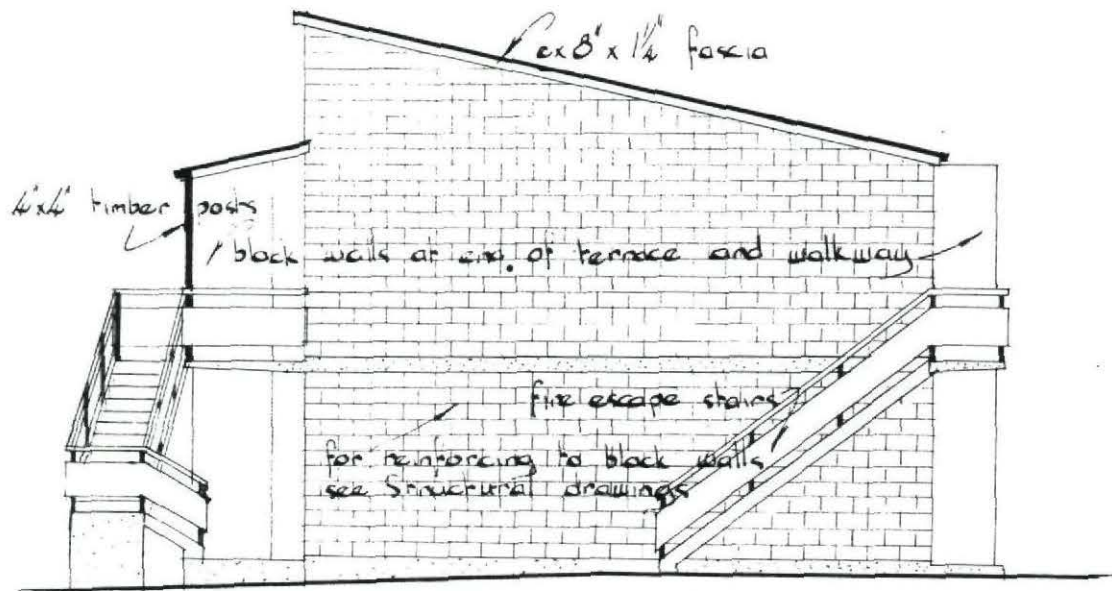 ex 8" x 1¼" fascia
4"x4" timber posts
block walls at end. of terrace and walkway
fire escape stairs
for reinforcing to block walls
see Structural drawings